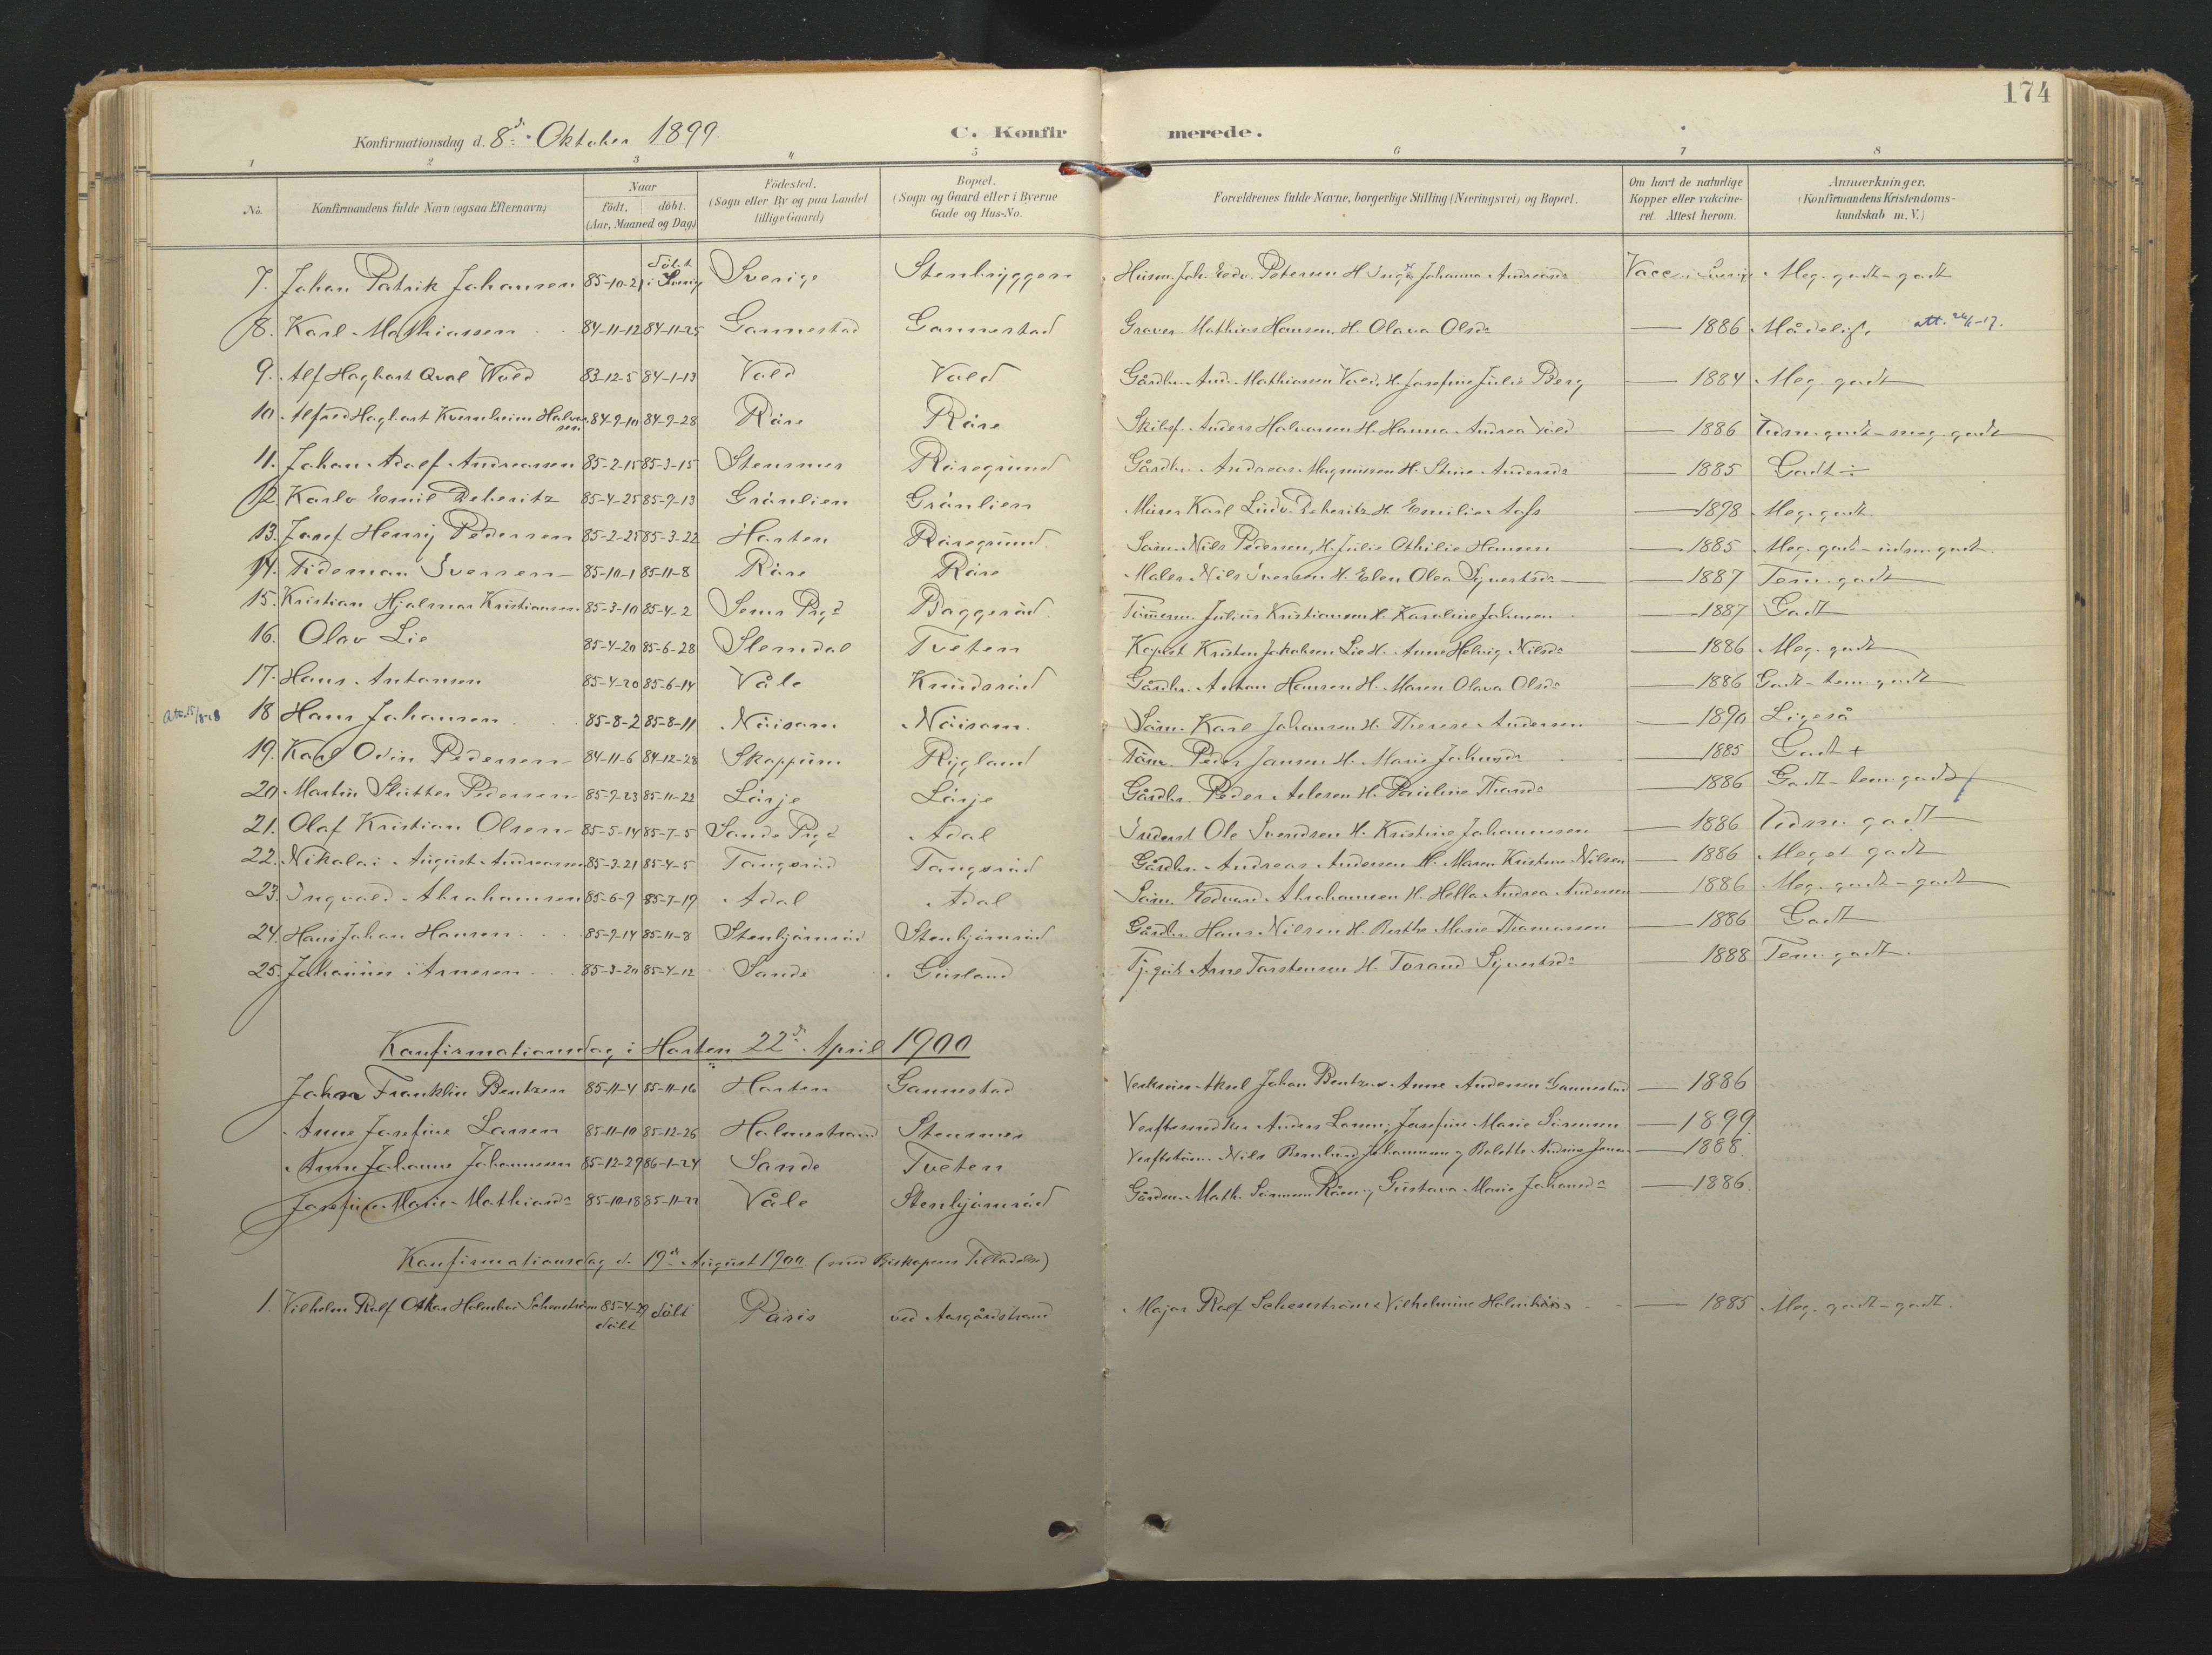 174
Konfirmationsdag d. 8de Oktober 1899.
C. Konfirmerede.
1 2 3 4 5 6 7 8
No. Konfirmandens fulde Navn (ogsaa Efternavn) Naar födt, döbt. (Aar, Maaned og Dag) Födested. (Sogn eller By og paa Landet tillige Gaard) Bopæl. (Sogn og Gaard eller i Byerne Gade og Hus-No. Forældrenes fulde Navne, borgerlige Stilling (Næringsvei) og Bopæl. Om havt de naturlige Kopper eller vakcineret Attest herom. Anmærkninger. (Konfirmandens Kristendomskundskab m. V.)
7. Johan Patrik Johansen 85-10-21 döbt i Sverig Sverige Stenbryggen Husm. Joh. Edv. Petersen H. Johanna Andreasdr Vacc. i Sverig Meg. godt - godt
8. Karl Mathiassen 84-11-12 84-11-25 Gannestad Gannestad Graver Mathias Hansen H. Olava Olsdr — 1886 Mådelig. att. 26/1-17.
9. Alf Hagbart Qval Wold 83-12-5 84-1-13 Vold Vold Gårdbr. And. Mathiassen Vold, H. Josefine Julie Berg — 1884 Meg. godt
10. Alfred Hagbart Kvernheim Halvorsen 84-9-10 84-9-28 Råre Råre Skibsf. Anders Halvorsen H. Hanna Andrea Vold — 1886 Udm. godt - meg. godt
11. Johan Adolf Andreassen 85-2-15 85-3-15 Stensmer Råregrund Gårdbr. Andreas Magnussen H. Stine Andersdr — 1885 Godt ÷
12. Karlo Emil Deberitz 85-4-25 85-9-13 Grånlien Grånlien Murer Karl Ludv. Deberitz H. Emilie — 1898 Meg. godt.
13. Josef Henrij Pedersen 85-2-25 85-3-22 Horten Råregrund. Sörn. Nils Pedersen, H. Julie Othilie Hansen — 1885 Meg. godt - udm. godt.
14. Tideman Iversen 85-10-1 85-11-8 Råre Råre Maler Nils Iversen H. Elen Olea Syvertsdr — 1887 Tem. godt
15. Kristian Hjalmar Kristiansen 85-3-10 85-4-2 Sems Prgd Baggeråd. Tömerm. Julius Kristiansen H. Karoline Johnsen — 1887 Godt
16. Olav Lie 85-4-20 85-6-28 Slemdal Tveten Kapert Kristen Jakobsen Lie H. Anne Helvig Nilsdr — 1886 Meg. godt
17. Hans Antonsen 85-4-20 85-6-14 Våle Knudsråd Gårdbr. Anton Hansen H. Maren Olava Olsdr — 1886 Godt - tem. godt
att. 15/8-18 18 Hans Johansen 85-8-2 85-8-11 Nöisom Nöisom. Sörn. Karl Johansen H. Therese Andersen — 1890 Ligeså
19. Karl Odin Pedersen 84-11-6 84-12-28 Skoppum Rygland Töm. Peder Jansen H. Marie Johnsdr 1885 Godt +
20. Martin Slutter Pedersen 85-9-23 85-11-22 Lörje Lörje Gårdbr. Peder Arlesen H. Pauline Thoresdr — 1886 Godt - tem. godt
21. Olaf Kristian Olsen 85-5-14 85-7-5 Sande Prgd Adal Inderst Ole Svendsen H. Kristine Johannesen — 1886 Udm. godt
22. Nikolai August Andreassen 85-2-21 85-4-5 Tangsråd Tangsråd Gårdbr. Andreas Andersen H. Maren Kristine Nilsen — 1886 Meget godt
23. Ingvald Abrahamsen 85-6-9 85-7-19 Adal Adal Sörn. Edvard Abrahamsen H. Hella Andrea Andersen — 1886 Meg. godt - godt
24. Hans Johan Hansen 85-9-14 85-11-8 Stenbjörnråd Stenbjörnråd Gårdbr. Hans Nilsen H. Berthe Marie Thomassen — 1886 Godt
25. Johannes Arnesen 85-3-20 85-4-12 Sande Gusland Tj.gut Arne Torstensen H. Torand Syvertsdr — 1888 Tem. godt.
Konfirmationsdag i Horten 22de April 1900
Johan Franklin Bentzen 85-11-4 85-11-16 Horten Gannestad Johan Bentzen Anne Andersen Gannestad — 1886
Anne Josefine Larsen 85-11-10 85-12-26 Holmestrand Stensmer Verftssnedker Anders Larsen, Josefine Marie Simensen — 1899
Anne Johanne Johannesen 85-12-27 86-1-24 Sande Tveten Verftstöm. Nils Bernhard Johannesen g Bolette Andrine Jansen — 1888.
Josefine Marie Mathiasdr 85-10-18 85-11-22 Våle Stenbjörnråd Gårdm. Math. Sörensen Råen; Gustava Marie Johansdr — 1886.
Konfirmationsdag d. 19de August 1900. (med Biskopens Tilladelse)
1. Vilhelm Rolf Oskar Holmboe Schenström 85-4-29 döbt döbt Paris ved Aasgårdstrand Major Rolf Schenström & Vilhelmine Holmboe — 1885 Meg. godt - godt.